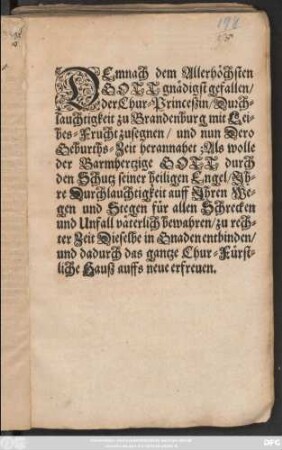 192
DEmnach dem Allerhöchsten
GOTT gnädigst gefallen/
der Chur-Princeßin/ Durch-
lauchtigkeit zu Brandenburg mit Lei-
bes-Frucht zusegnen/ und nun Dero
Geburths-Zeit herannahet: Als wolle
der Barmhertzige GOTT durch
den Schutz seiner heiligen Engel/ Ih-
re Durchlauchtigkeit auff Ihren We-
gen und Stegen für allen Schrecken
und Unfall vaterlich bewahren/ zu rech-
ter Zeit Dieselbe in Gnaden entbinden/
und dadurch das gantze Chur-Fürst-
liche Hauß auffs neue erfreuen.